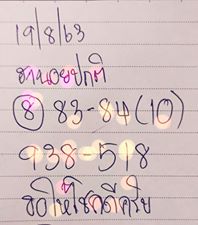 19/8/63
ฮานอยปกติ
8 83-84(10)
938-518
ขอให้โชคดีครับ